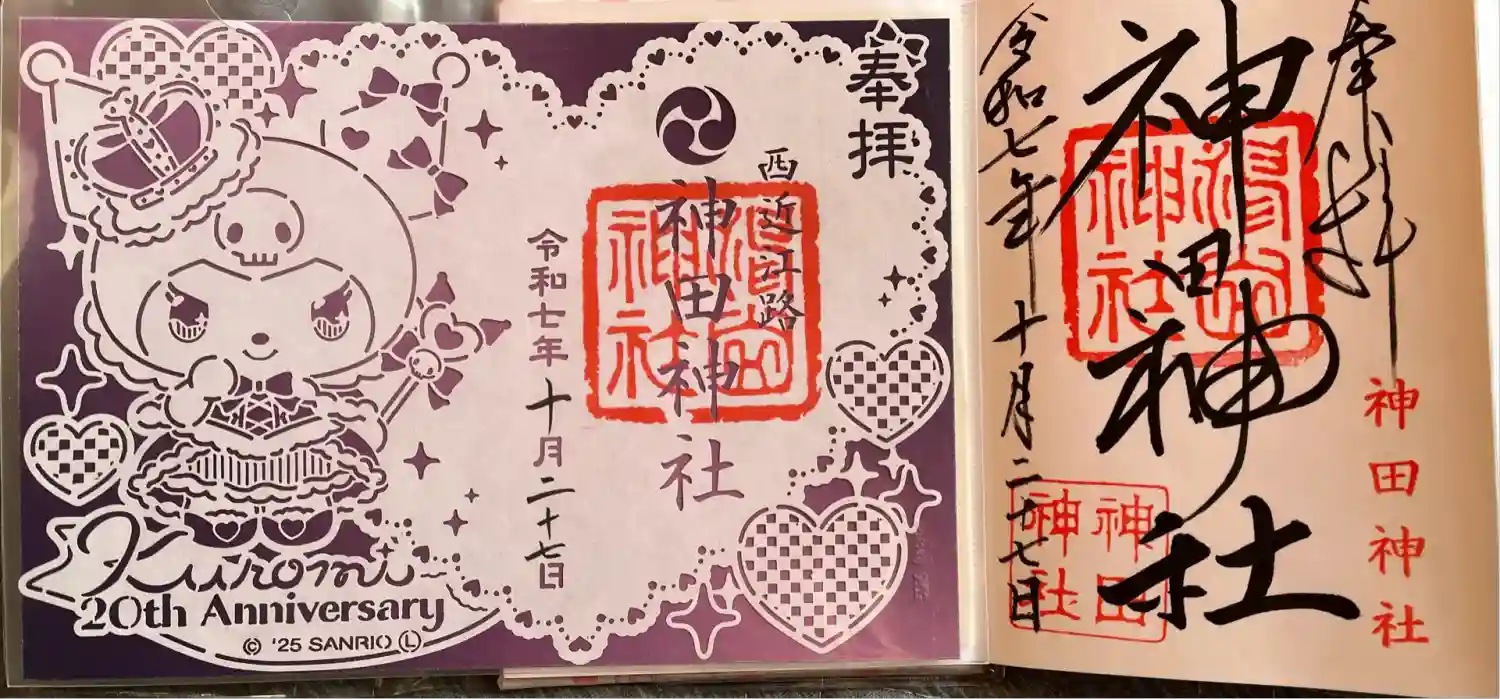 奉拝
西近江路
神田神社
令和七年十月二十七日
神社
Kuromi
20th Anniversary
© '25 SANRIO Ⓛ
奉拝
神田神社
神田神社
神社
令和七年十月二十七日
神田
神社